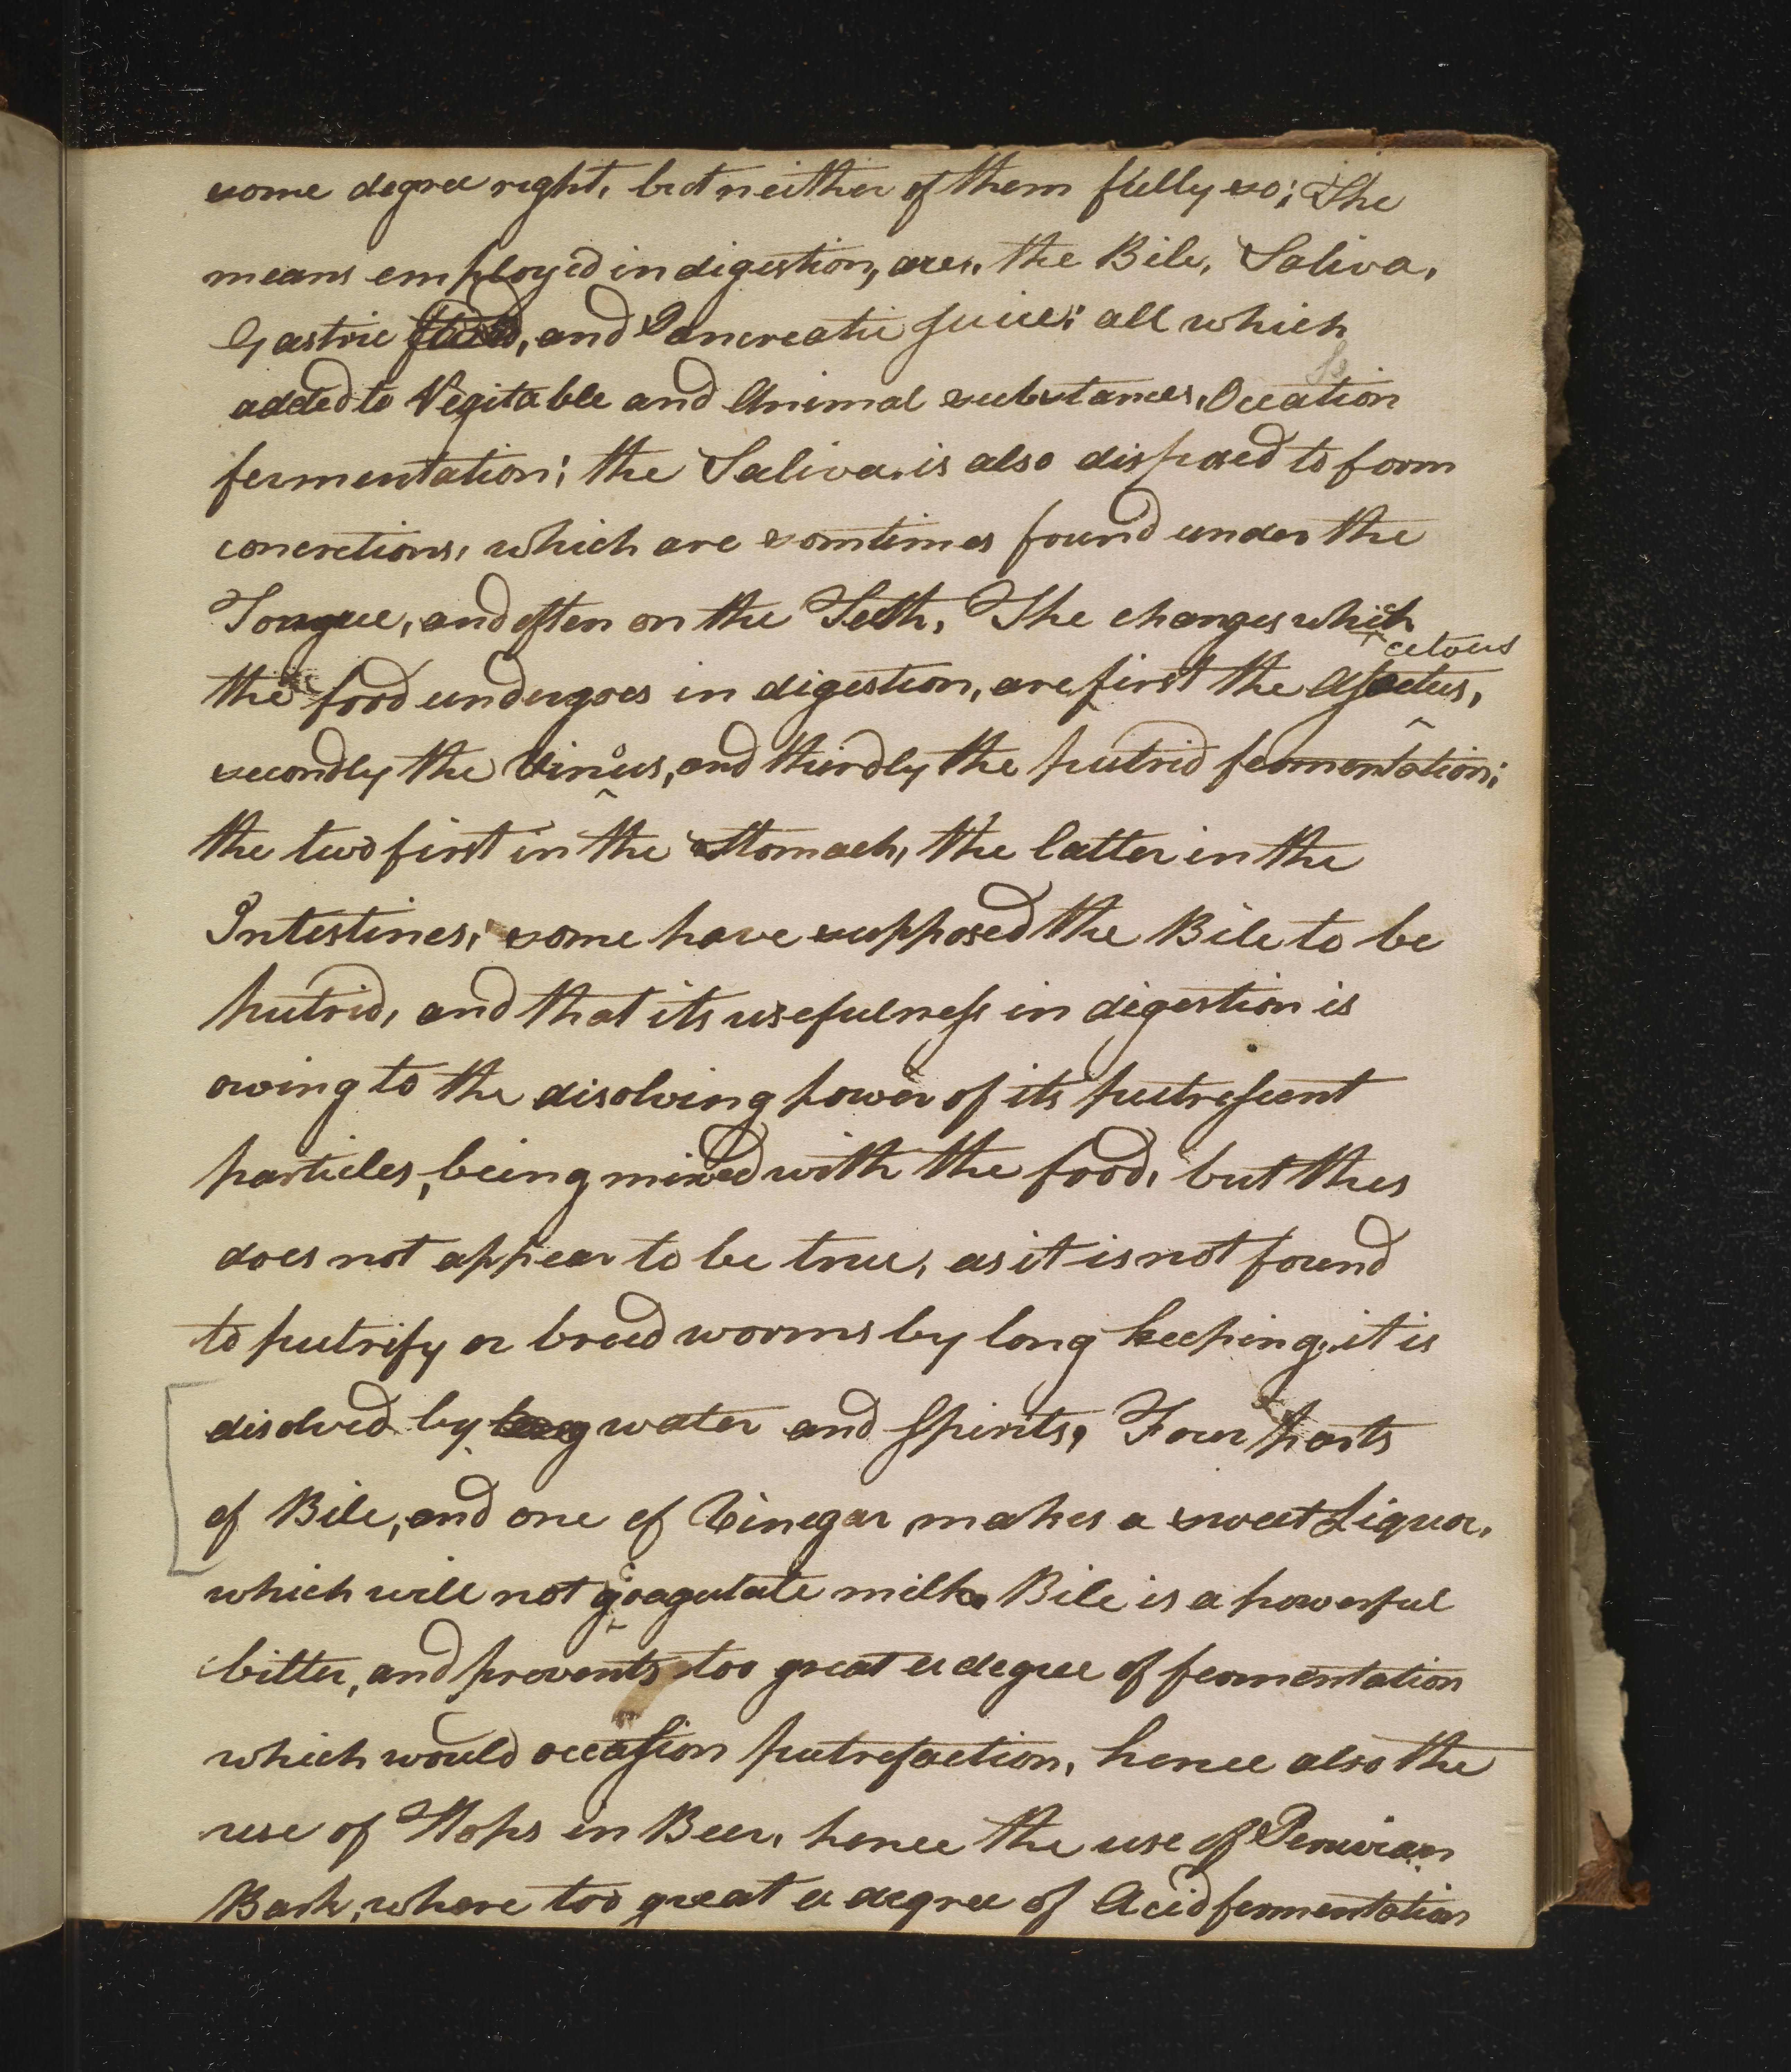 some degree right, but neither of them fully so; The
means employed in digestion, are, the Bile, Saliva,
Gastric and Pancreatic juice; all which
added to Vegitable and Animal substances, Ocation
fermentation; the Saliva, is also disposed to form
concretions, which are somtimes found under the
Tongue, and often on the Teeth, The changes which
cetous
the food undergoes in digestion, are, first the
secondly the Vinous, and thirdly the putrid fermentation;
the two first in the Stomach, the latter in the
Intestines; some have supposed the Bile to be
putrid, and that its usefulness in digestion is
owing to the disolving power of its putrescent
particles, being mixed with the food, but this
does not appear to be true, as it is not found
to putrify or breed worms by long keeping, it is
disolved by water and Spirits, Four parts
of Bile, and one of Vinegar, makes a sweet Liquor,
which will not coagulate milk. Bile is a powerful
bitter, and prevents too great a degree of fermentation
which would occasion putrefaction, hence also the
use of Hops in Beer, hence the use of Peruvian
Bark, where too great a degree of Acid fermentation